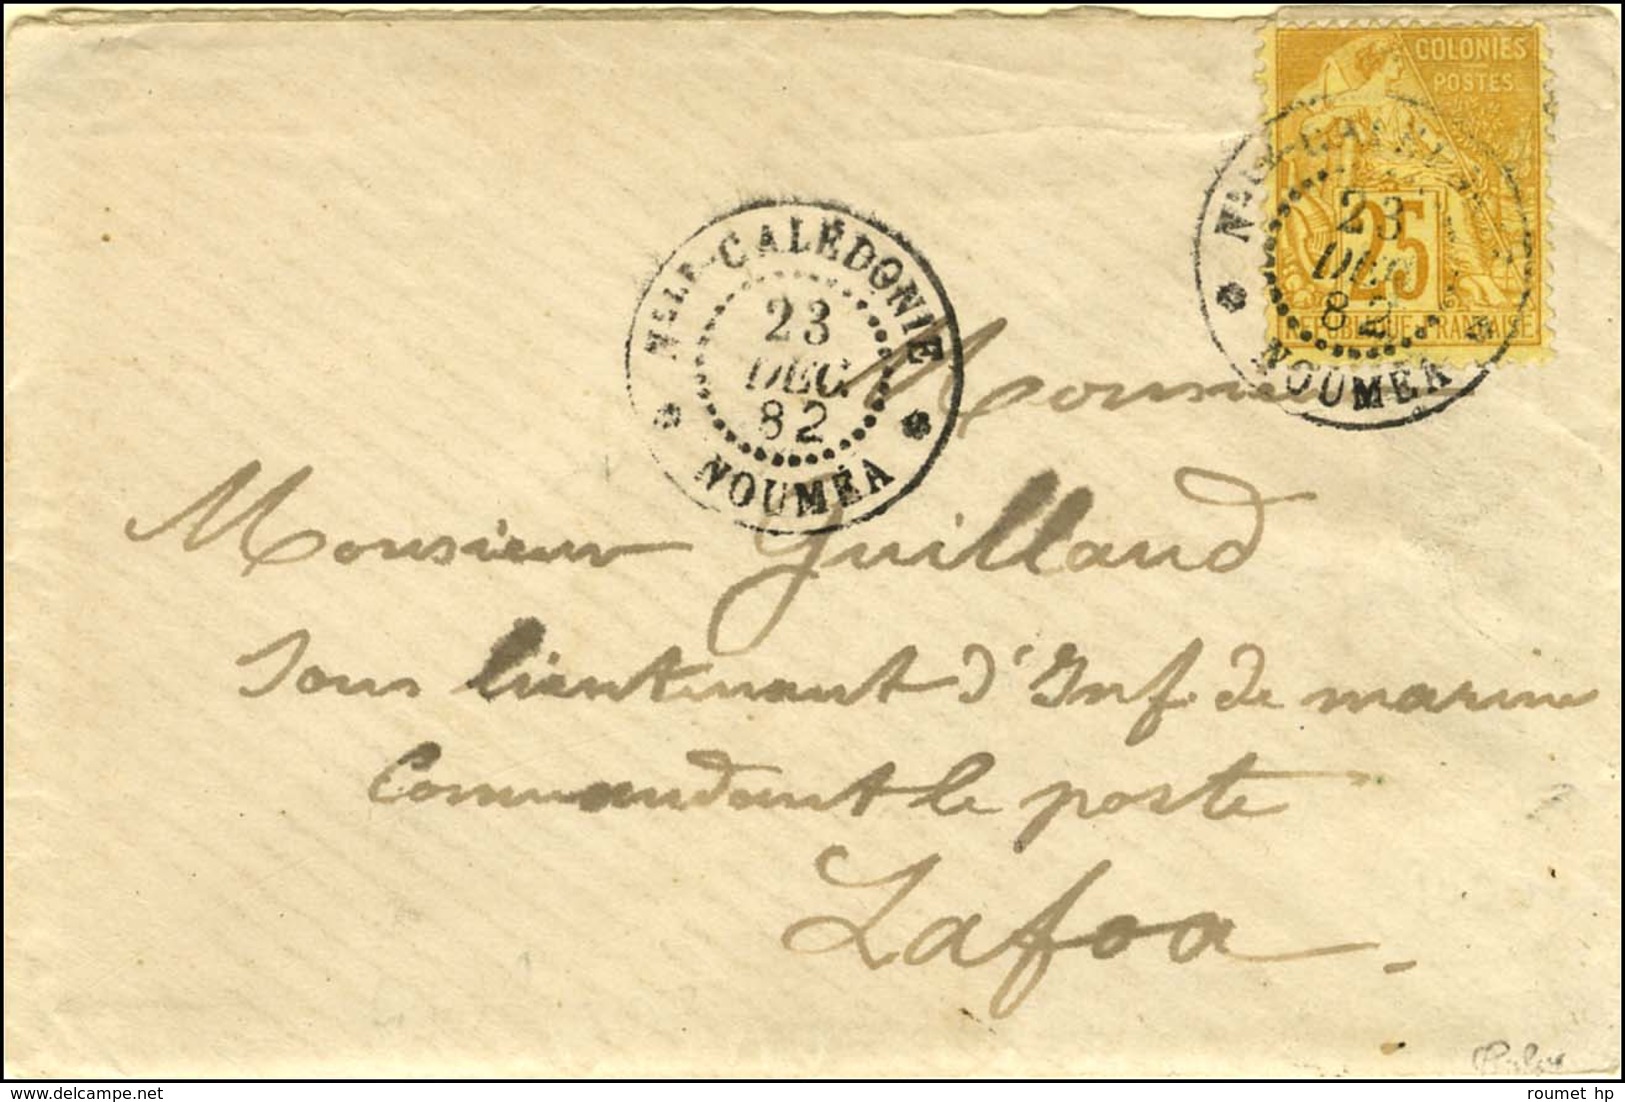 COLONIES
POSTES
25
RÉPUBLIQUE FRANÇAISE
Nlle CALÉDONIE
23
DEC
82
NOUMÉA
Nlle CALÉDONIE
23
DEC.
82
NOUMÉA
Monsieur
Monsieur Guilland
Sous lieutenant d'Inf. de marine
Commandant le poste
Lafoa
roumet hp